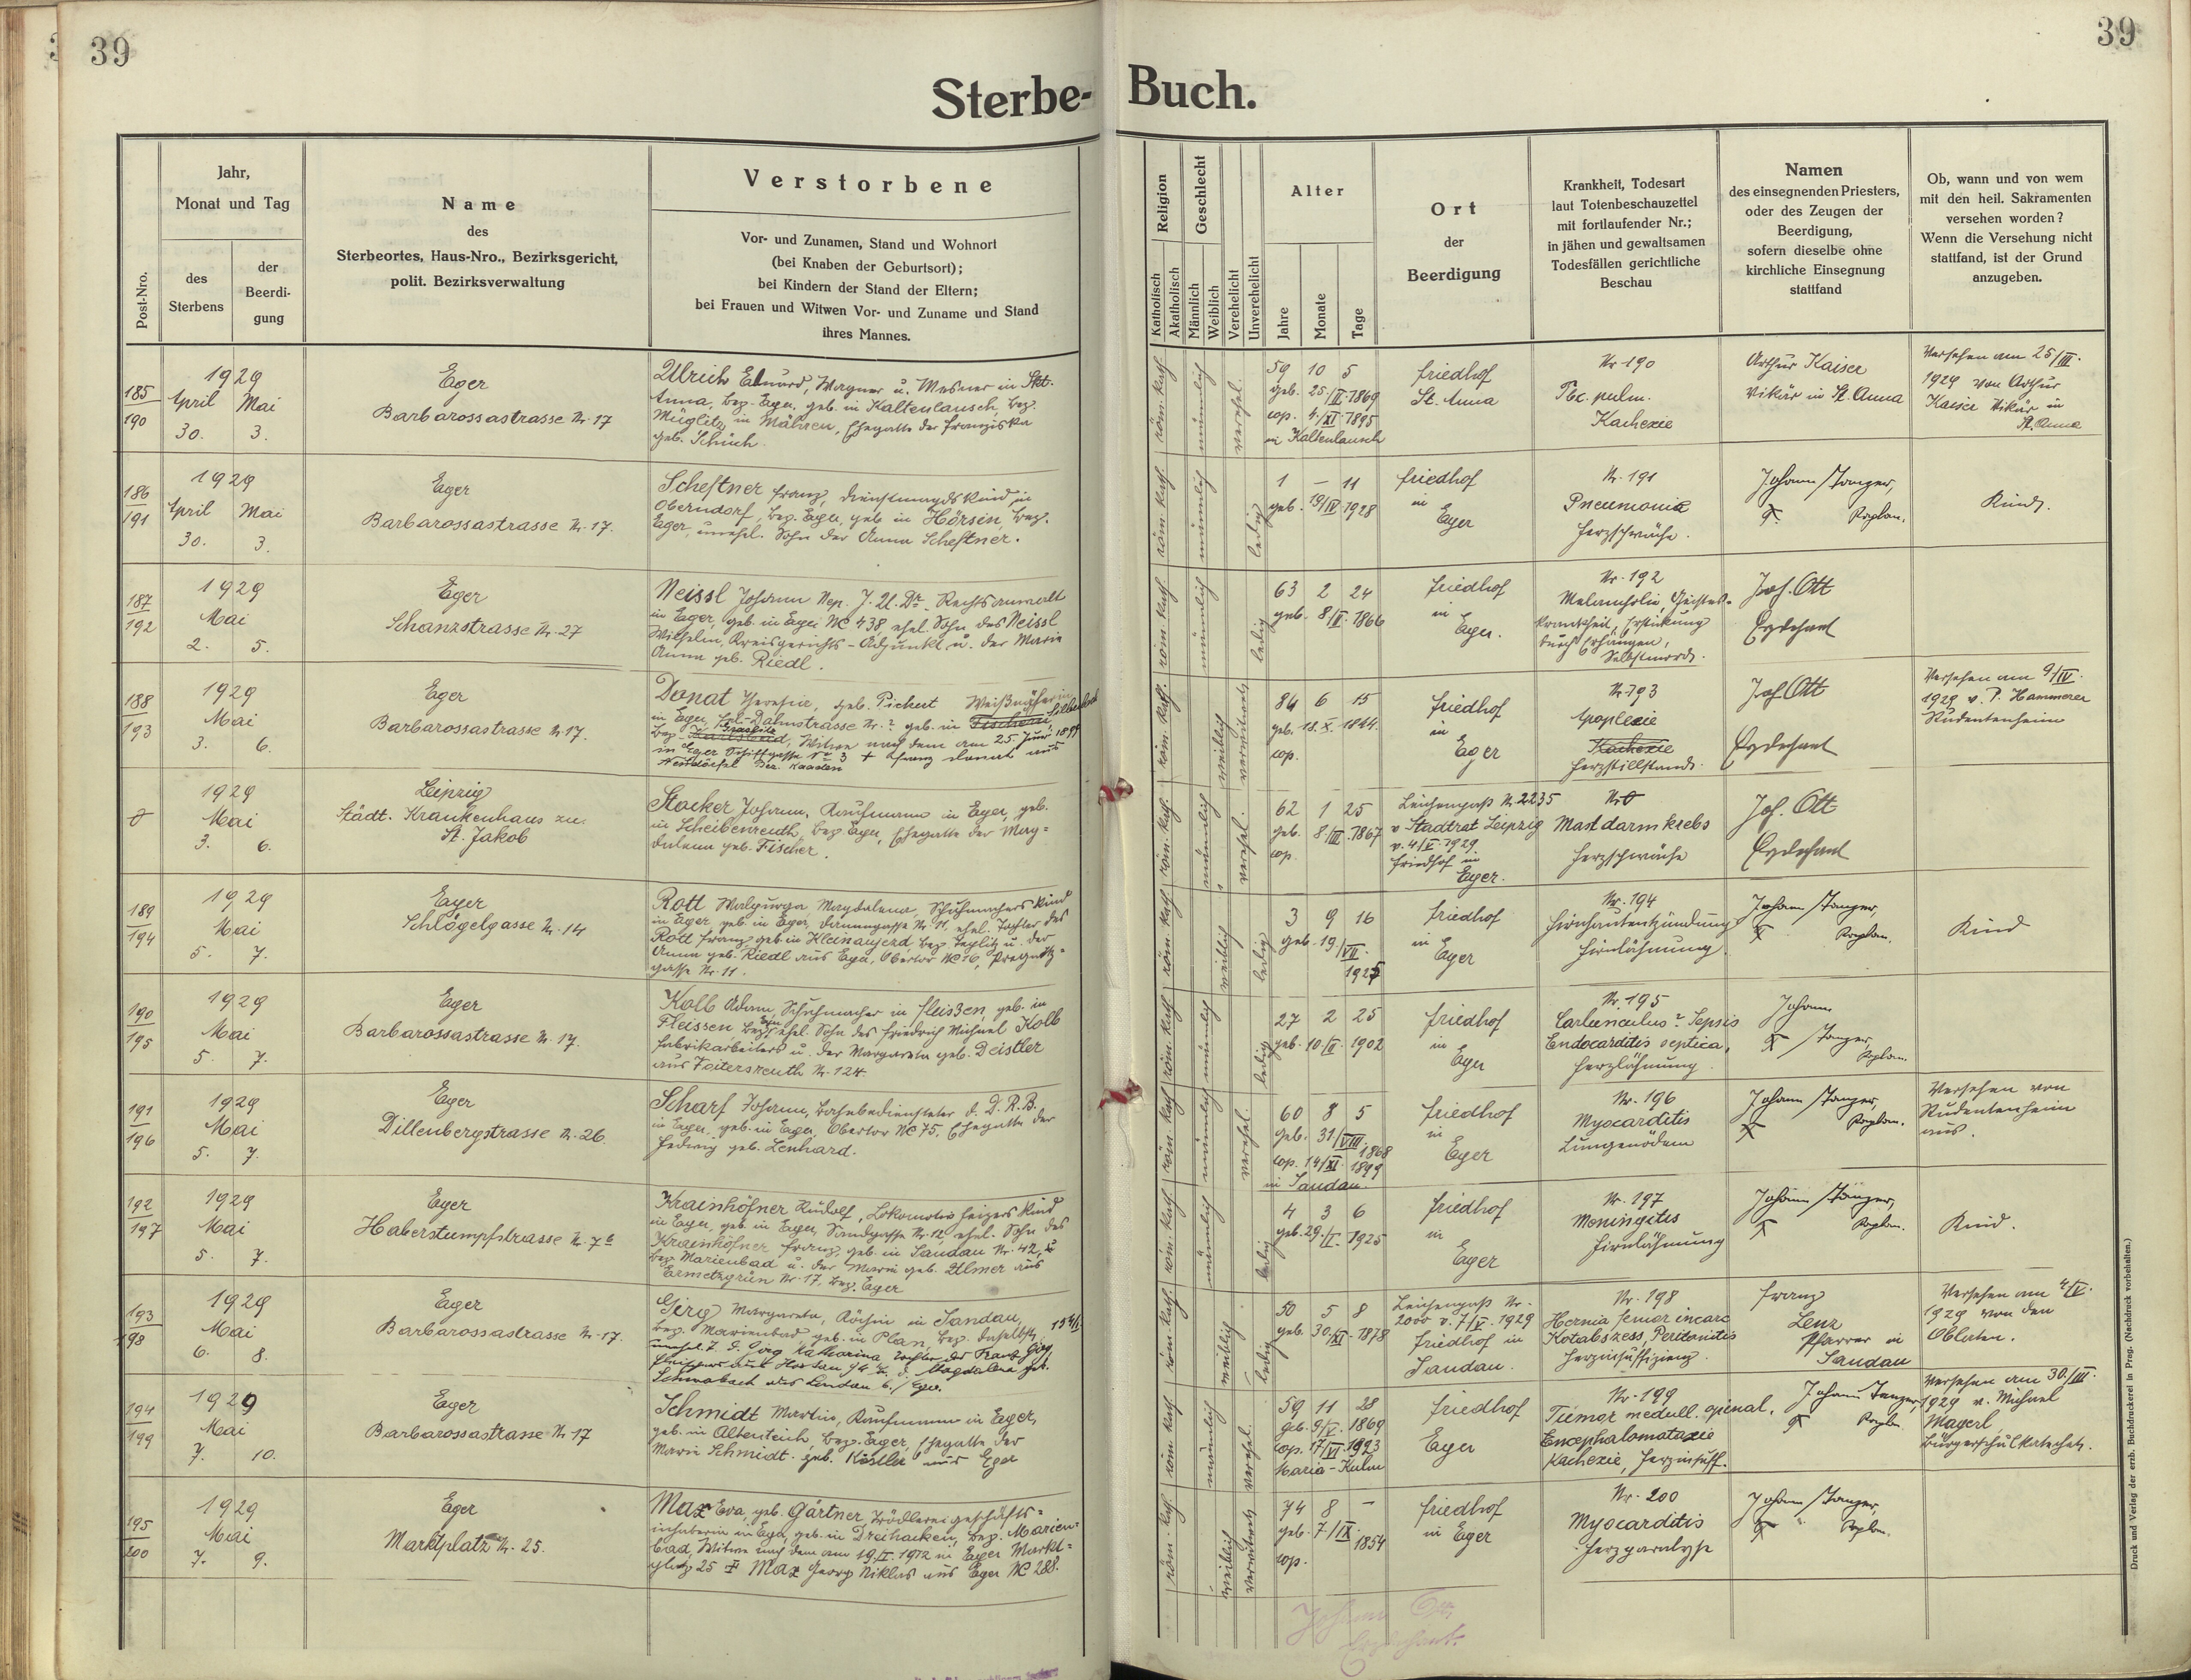 39
39
Sterbe-Buch.
Post-Nro.
Jahr,
Monat und Tag
des
Sterbens
der
Beerdi-
gung
Name
des
Sterbeortes, Haus-Nro., Bezirksgericht,
polit. Bezirksverwaltung
Verstorbene
Vor- und Zunamen, Stand und Wohnort
(bei Knaben der Geburtsort);
bei Kindern der Stand der Eltern;
bei Frauen und Witwen Vor- und Zuname und Stand
ihres Mannes.
Religion
Katholisch
Akatholisch
Geschlecht
Männlich
Weiblich
Verehelicht
Unverehelicht
Alter
Jahre
Monate
Tage
Ort
der
Beerdigung
Krankheit, Todesart
laut Totenbeschauzettel
mit fortlaufender Nr.;
in jähen und gewaltsamen
Todesfällen gerichtliche
Beschau
Namen
des einsegnenden Priesters,
oder des Zeugen der
Beerdigung,
sofern dieselbe ohne
kirchliche Einsegnung
stattfand
Ob, wann und von wem
mit den heil. Sakramenten
versehen worden?
Wenn die Versehung nicht
stattfand, ist der Grund
anzugeben.
185
190
1929
April Mai
30. 3.
Eger
Barbarossastrasse Nr. 17
Ulrich Eduard, Wagner u. Mesner in Skt.
Anna, bez. Eger, geb. in Kaltenlausch, bez.
Müglitz in Mähren, Ehegatte der Franziska
geb. Schüch.
röm. kath.
männlich
verehel.
59 10 5
geb. 25./VI. 1869
cop. 4./XI. 1895
in Kaltenlausch
Friedhof
St. Anna
Nr. 190
Tbc. pulm.
Kachexie
Arthur Kaiser
Vikär in St. Anna
Versehen am 25/III.
1929 von Arthur
Kaiser Vikär in
St. Anna
186
191
1929
April Mai
30. 3.
Eger
Barbarossastrasse Nr. 17.
Scheftner Franz, Dienstmagdskind in
Oberndorf, bez. Eger, geb. in Hörsin, bez.
Eger, unehel. Sohn der Anna Scheftner.
röm. kath.
männlich
ledig
1 – 11
geb. 19/IV 1928
Friedhof
in
Eger
Nr. 191
Pneumonia
Herzschwäche.
Johann Stanger,
Kaplan.
Kind.
187
192
1929
Mai
2. 5.
Eger
Schanzstrasse Nr. 27
Neissl Johann Nep. J. U. Dr. Rechtsanwalt
in Eger, geb. in Eger NC 438 ehel. Sohn des Neissl
Wilhelm, Kreisgerichts-Adjunkt u. der Maria
Anna geb. Riedl.
röm. kath.
männlich
ledig
63 2 24
geb. 8/II. 1866
Friedhof
in
Eger.
Nr. 192
Melancholie, Geistes-
krankheit, Erstickung
durch Erhängen,
Selbstmord.
Joh. Ott
Erzdechant
188
193
1929
Mai
3. 6.
Eger
Barbarossastrasse Nr. 17.
Donat Theresia, geb. Pichert Weißnäherin
röm. kath.
weiblich
verwitwet
84 6 15
geb. 18. X. 1844.
cop.
Friedhof
in
Eger
Nr. 193
Apoplexie
Kachexie
Herzstillstand.
Joh. Ott
Erzdechant
Versehen am 9/IV.
1929 v. P. Hammerer
Studentenheim
1929
Mai
3. 6.
Leipzig
Städt. Krankenhaus zu
St. Jakob
Stocker Johann, Kaufmann in Eger, geb.
in Scheibenreuth, bez. Eger, Ehegatte der Mag-
dalena geb. Fischer.
röm. kath.
männlich
verehel.
62 1 25
geb. 8/III. 1867
cop.
Leichenpaß Nr. 2235
v. Stadtrat Leipzig
v. 4/V. 1929.
Friedhof in
Eger.
Mastdarmkrebs
Herzschwäche
Joh. Ott
Erzdechant
189
194
1929
Mai
5. 7.
Eger
Schlögelgasse Nr. 14
Rott Walpurga Magdalena, Schuhmachers Kind
in Eger, geb. in Eger, Nr. 11, ehel. Tochter des
Rott Franz, geb. in Kleinaujezd bez. Teplitz u. der
Anna geb. Riedl aus Eger, Obertor NC 16,
gasse Nr. 11.
röm. kath.
weiblich
ledig
3 9 16
geb. 19./VII.
1925
Friedhof
in
Eger
Nr. 194
Hirnhautentzündung
Hirnlähmung.
Johann Stanger,
Kaplan.
Kind
190
195
1929
Mai
5. 7.
Eger
Barbarossastrasse Nr. 17.
Kolb Adam, Schuhmacher in Fleissen, geb. in
Fleissen, bez. Eger, ehel. Sohn des Friedrich Michael Kolb
Fabrikarbeiters u. der Margareta geb. Deistler
aus Nr. 124.
röm. kath.
männlich
ledig
27 2 25
geb. 10./II. 1902
Friedhof
in
Eger
Nr. 195
Carbunculus? Sepsis
Endocarditis septica,
Herzlähmung.
Johann
Stanger,
Kaplan.
191
196
1929
Mai
5. 7.
Eger
Dillenbergstrasse Nr. 26.
Scharf Johann, Bahnbediensteter d. D.R.B.
in Eger, geb. in Eger, Obertor NC 75, Ehegatte der
Hedwig geb. Lenhard.
röm. kath.
männlich
verehel.
60 8 5
geb. 31/VIII. 1868
cop. 14/XI. 1899
in Sandau
Friedhof
in
Eger
Nr. 196
Myocarditis
Lungenödem
Johann Stanger,
Kaplan.
Versehen von
Studentenheim
aus.
192
197
1929
Mai
5. 7.
Eger
Haberstumpfstrasse Nr. 7b
Krainhöfner Rudolf, Lokomotivheizers Kind
in Eger, geb. in Eger, Sandgasse Nr. 12, ehel. Sohn des
Krainhöfner Franz, geb. in Sandau Nr. 42,
bez. Marienbad u. der Maria geb. Ulmer aus
Ermetzgrün Nr. 17, bez. Eger
röm. kath.
männlich
ledig
4 3 6
geb. 29./I. 1925
Friedhof
in
Eger
Nr. 197
Meningitis
Hirnlähmung
Johann Stanger,
Kaplan.
Kind.
193
198
1929
Mai
6. 8.
Eger
Barbarossastrasse Nr. 17.
Girg Margareta, Köchin in Sandau,
bez. Marienbad, geb. in Plan, bez. daselbst,
röm. kath.
weiblich
ledig
50 5 8
geb. 30/XI. 1878
Leichenpaß Nr.
2000 v. 7/V. 1929
Friedhof in
Sandau.
Nr. 198
Hernia femor incarc
Kotabszess, Peritonitis
Herzinsuffizienz.
Franz
Lenz
Pfarrer in
Sandau
Versehen am 4/V.
1929 von den
Oblaten.
194
199
1929
Mai
7. 10.
Eger
Barbarossastrasse Nr. 17
Schmidt Martin, Kaufmann in Eger,
geb. in Albenteich, bez. Eger, Ehegatte der
Maria Schmidt geb. Köstler aus Eger
röm. kath.
männlich
verehel.
59 11 28
geb. 9/V. 1869
cop. 17/VI. 1923
Maria-Kulm
Friedhof
Eger
Nr. 199
Tumor medull. spinal.
Encephalomalaxie
Kachexie, Herzinsuff.
Johann Stanger,
Kaplan
Versehen am 30./III.
1929 v. Michael
Magerl,
Bürgerschulkatechet.
195
200
1929
Mai
7. 9.
Eger
Marktplatz Nr. 25.
Max Eva, geb. Gärtner, Trödlereigeschäfts-
inhaberin in Eger, geb. in Dreihacken, bez. Marien-
bad, Witwe nach dem am 19./I. 1912 in Eger Markt-
platz 25 † Max Georg Niklas aus Eger NC 288.
röm. kath.
weiblich
verwitwet
74 8 –
geb. 7./IX. 1854
cop.
Friedhof
in Eger
Nr. 200
Myocarditis
Herzparalyse
Johann Stanger,
Kaplan.
Johann Ott
Erzdechant.
Druck und Verlag der erzb. Buchdruckerei in Prag. (Nachdruck vorbehalten.)